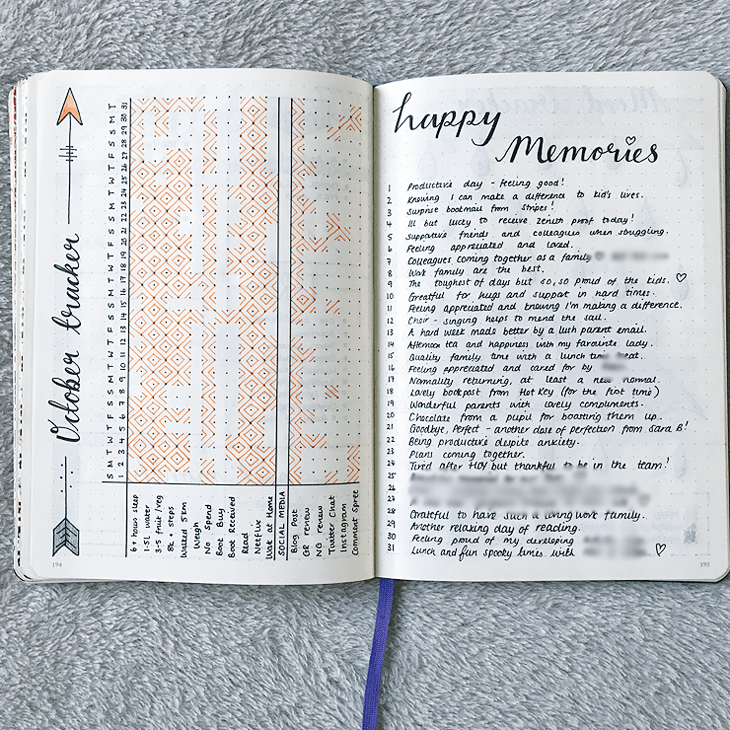 October tracker
S M T W T F S S M T W T F S S M T W T F S S M T W T F S S M T
1 2 3 4 5 6 7 8 9 10 11 12 13 14 15 16 17 18 19 20 21 22 23 24 25 26 27 28 29 30 31
6+ hours sleep
1.5L water
3-5 fruit/veg
8k + steps
Walked 5km
Weigh
No Spend
Book Buy
Book Received
Read
Netflix
Work at Home
SOCIAL MEDIA
Blog Post
GR renew
NG renew
Twitter Chat
Instagram
Comment Spree
194
happy
Memories
1 Productive day - feeling good!
2 Knowing I can make a difference to kid's lives.
3 Surprise bookmail from Stripes!
4 Ill but lucky to receive Zenith proof today!
5 Supportive friends and colleagues when struggling.
6 Feeling appreciated and loved.
7 Colleagues coming together as a family
8 Work family are the best.
9 The toughest of days but so, so proud of the kids.
10 Greatful for hugs and support in hard times.
11 Feeling appreciated and knowing I'm making a difference.
12 Choir - singing helps to mend the soul.
13 A hard week made better by a lush parent email.
14 Afternoon tea and happiness with my favourite lady.
15 Quality family time with a lunch time treat.
16 Feeling appreciated and cared for by
17 Normality returning, at least a new normal.
18 Lovely bookpost from Hot Key (for the first time)
19 Wonderful parents with lovely compliments.
20 Chocolate from a pupil for boosting them up.
21 Goodbye, Perfect - another dose of perfection from Sara B!
22 Being productive despite anxiety.
23 Plans coming together.
24 Tired after but thankful to be in the team!
25
26
27
28 Gratiful to have such a loving work family.
29 Another relaxing day of reading.
30 Feeling proud of my developing
31 Lunch and fun spooky times with
195